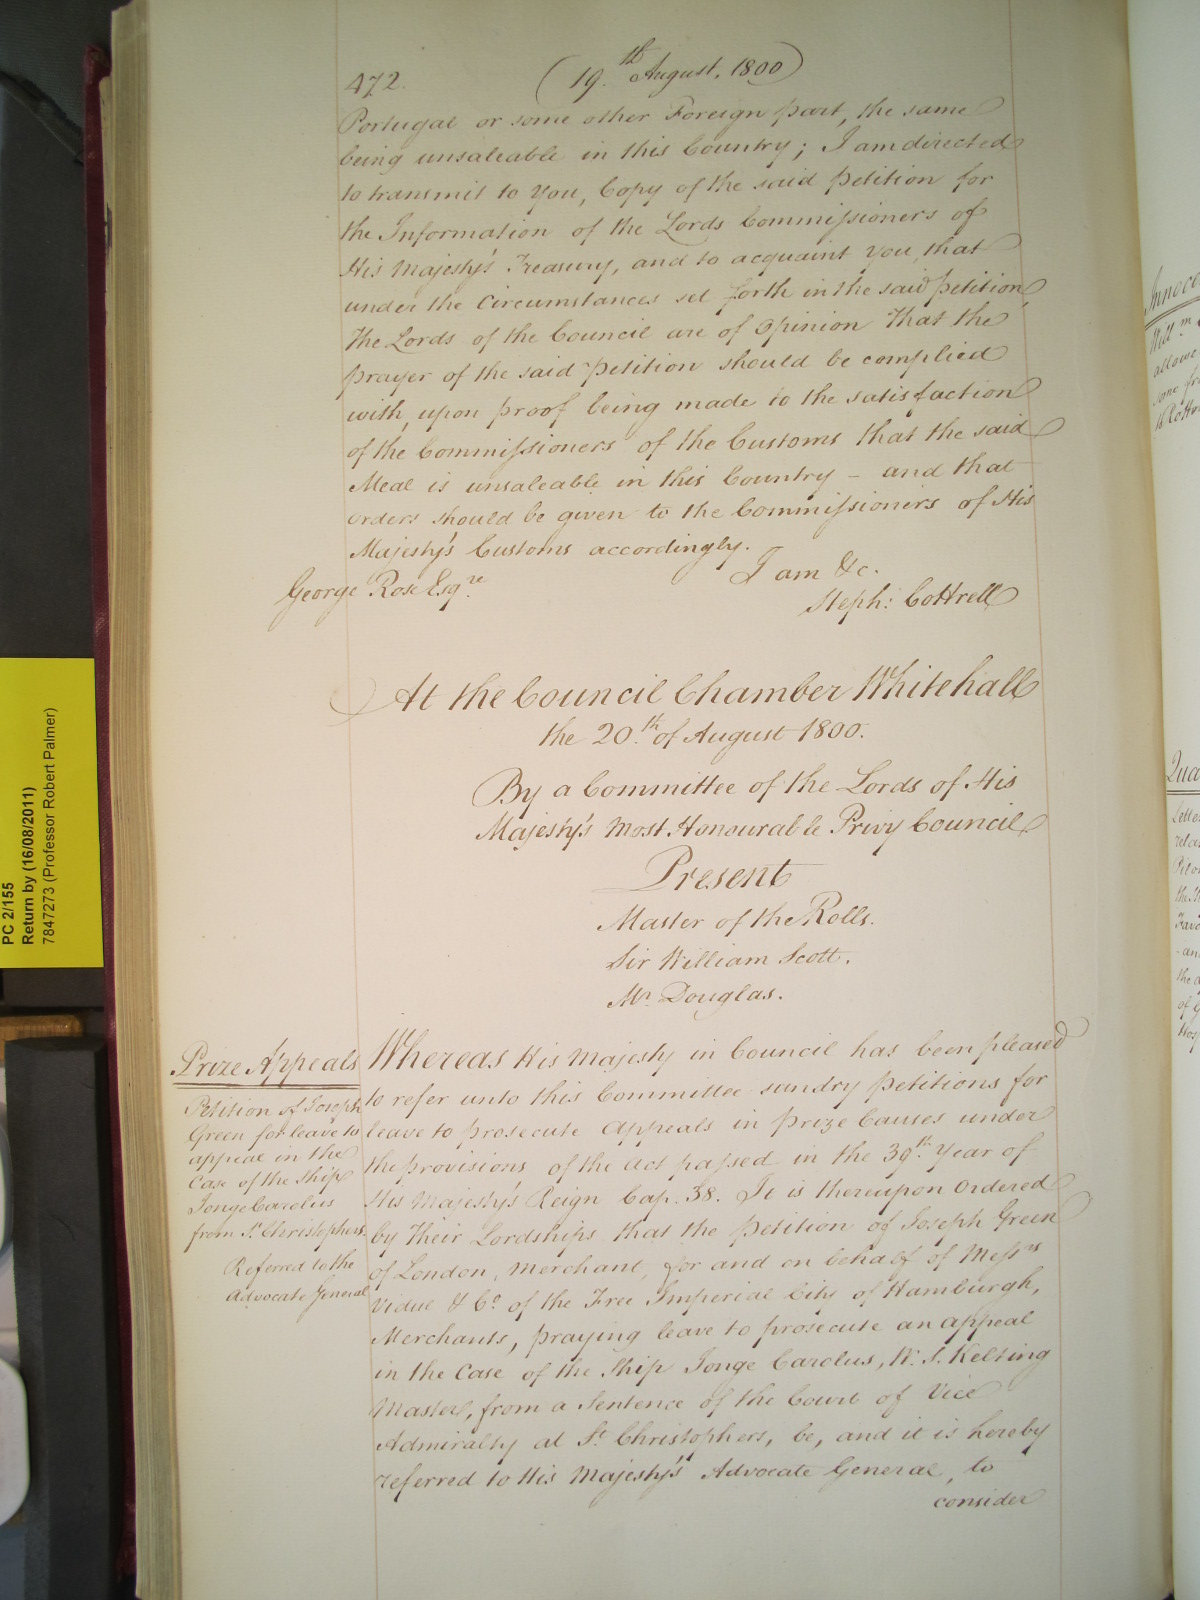 472.
(19.th August, 1800)
Portugal or some other Foreign part, the same
being unsaleable in this Country; I am directed
to transmit to You, Copy of the said Petition for
the Information of the Lords Commissioners of
His Majesty's Treasury, and to acquaint you, that
under the Circumstances set forth in the said Petition,
The Lords of the Council are of Opinion that the
prayer of the said Petition should be complied
with, upon proof being made to the satisfaction
of the Commissioners of the Customs that the said
Meal is unsaleable in this Country – and that
orders should be given to the Commissioners of His
Majesty's Customs accordingly.
I am &c.
George Rose Esq.re
Steph: Cottrell
At the Council Chamber Whitehall
the 20.th of August 1800.
By a Committee of the Lords of His
Majesty's Most Honourable Privy Council
Present
Master of the Rolls.
Sir William Scott.
Mr. Douglas.
Prize Appeals
Petition of Joseph
Green for leave to
appeal in the
Case of the Ship
Jonge Carolus
from St. Christophers.
Referred to the
Advocate General
Whereas His Majesty in Council has been pleased
to refer unto this Committee sundry Petitions for
leave to prosecute Appeals in Prize Causes under
the provisions of the Act passed in the 39.th Year of
His Majesty's Reign Cap. 38. It is thereupon Ordered
by Their Lordships that the Petition of Joseph Green
of London, Merchant, for and on behalf of Messrs
Vidal & Co. of the Free Imperial City of Hamburgh,
Merchants, praying leave to prosecute an appeal
in the Case of the Ship Jonge Carolus, Kelting
Master, from a Sentence of the Court of Vice
Admiralty at St. Christophers, be, and it is hereby
referred to His Majesty's Advocate General, to
consider
PC 2/155
Return by (16/08/2011)
7847273 (Professor Robert Palmer)